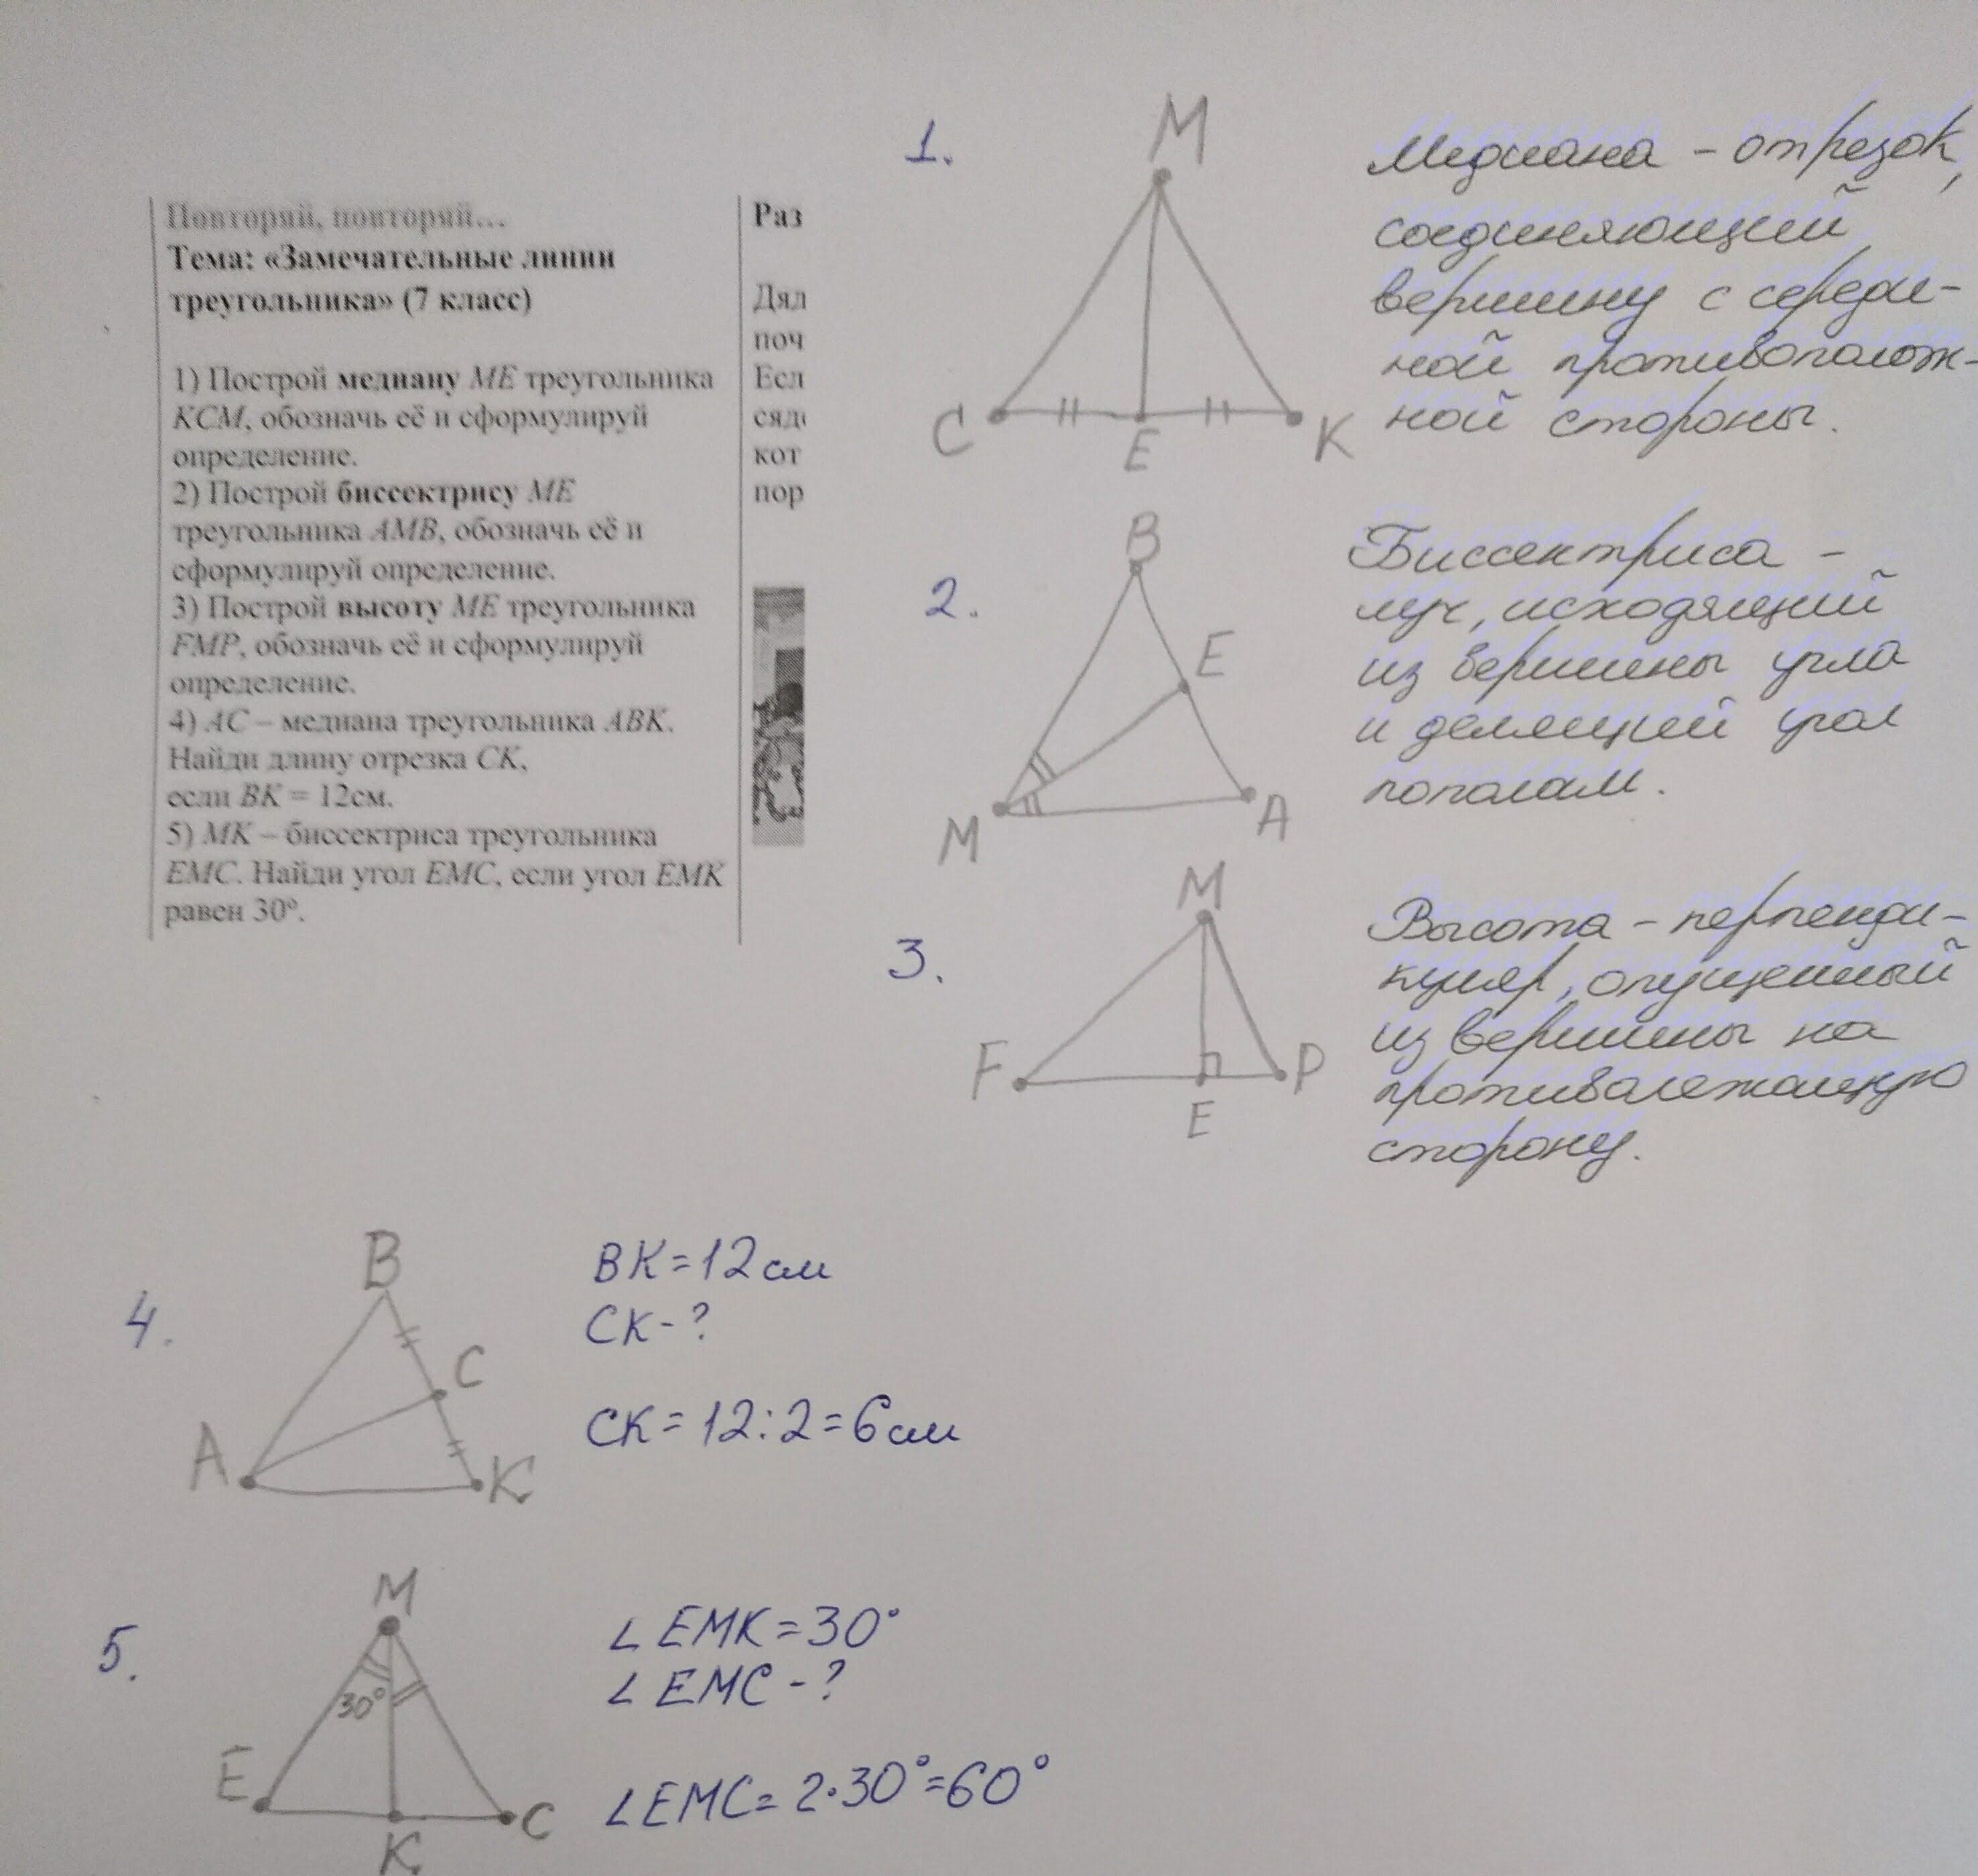 Повторяй, повторяй...
Тема: «Замечательные линии
треугольника» (7 класс)
1) Построй медиану ME треугольника
KCM, обозначь её и сформулируй
определение.
2) Построй биссектрису ME
треугольника AMB, обозначь её и
сформулируй определение.
3) Построй высоту ME треугольника
FMP, обозначь её и сформулируй
определение.
4) AC – медиана треугольника ABK.
Найди длину отрезка CK,
если BK = 12см.
5) MK – биссектриса треугольника
EMC. Найди угол EMC, если угол EMK
равен 30°.
Раз
Дял
поч
Есл
сяд
кот
пор
1.
M
C
E
K
Медиана - отрезок,
соединяющий
вершину с середи-
ной противополож-
ной стороны.
2.
B
E
M
A
Биссектриса -
луч, исходящий
из вершины угла
и делящий угол
пополам.
3.
M
F
E
P
Высота - перпенди-
куляр, опущенный
из вершины на
противолежащую
сторону.
4.
B
C
A
K
BK = 12 см
CK - ?
CK = 12 : 2 = 6 см
5.
M
30°
E
K
C
∠ EMK = 30°
∠ EMC - ?
∠EMC = 2·30° = 60°